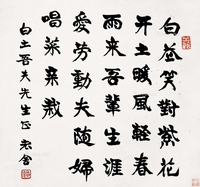 白笑對紫花
开土暖風輕春
雨来吾輩生涯
愛劳動夫随婦
唱菜亲栽
白土吾夫先生正 老舍